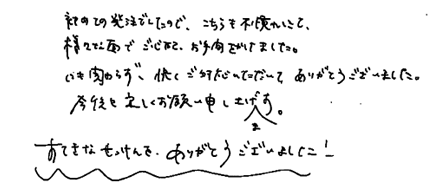 初めての発注でしたので、こちらも不慣れにて、
様々な面で ご迷惑、お手間をかけました。
にも関わらず、快くご対応いただいて ありがとうございました。
今後とも宜しくお願い申し上げます。
すてきなせっけんを、ありがとうございました!